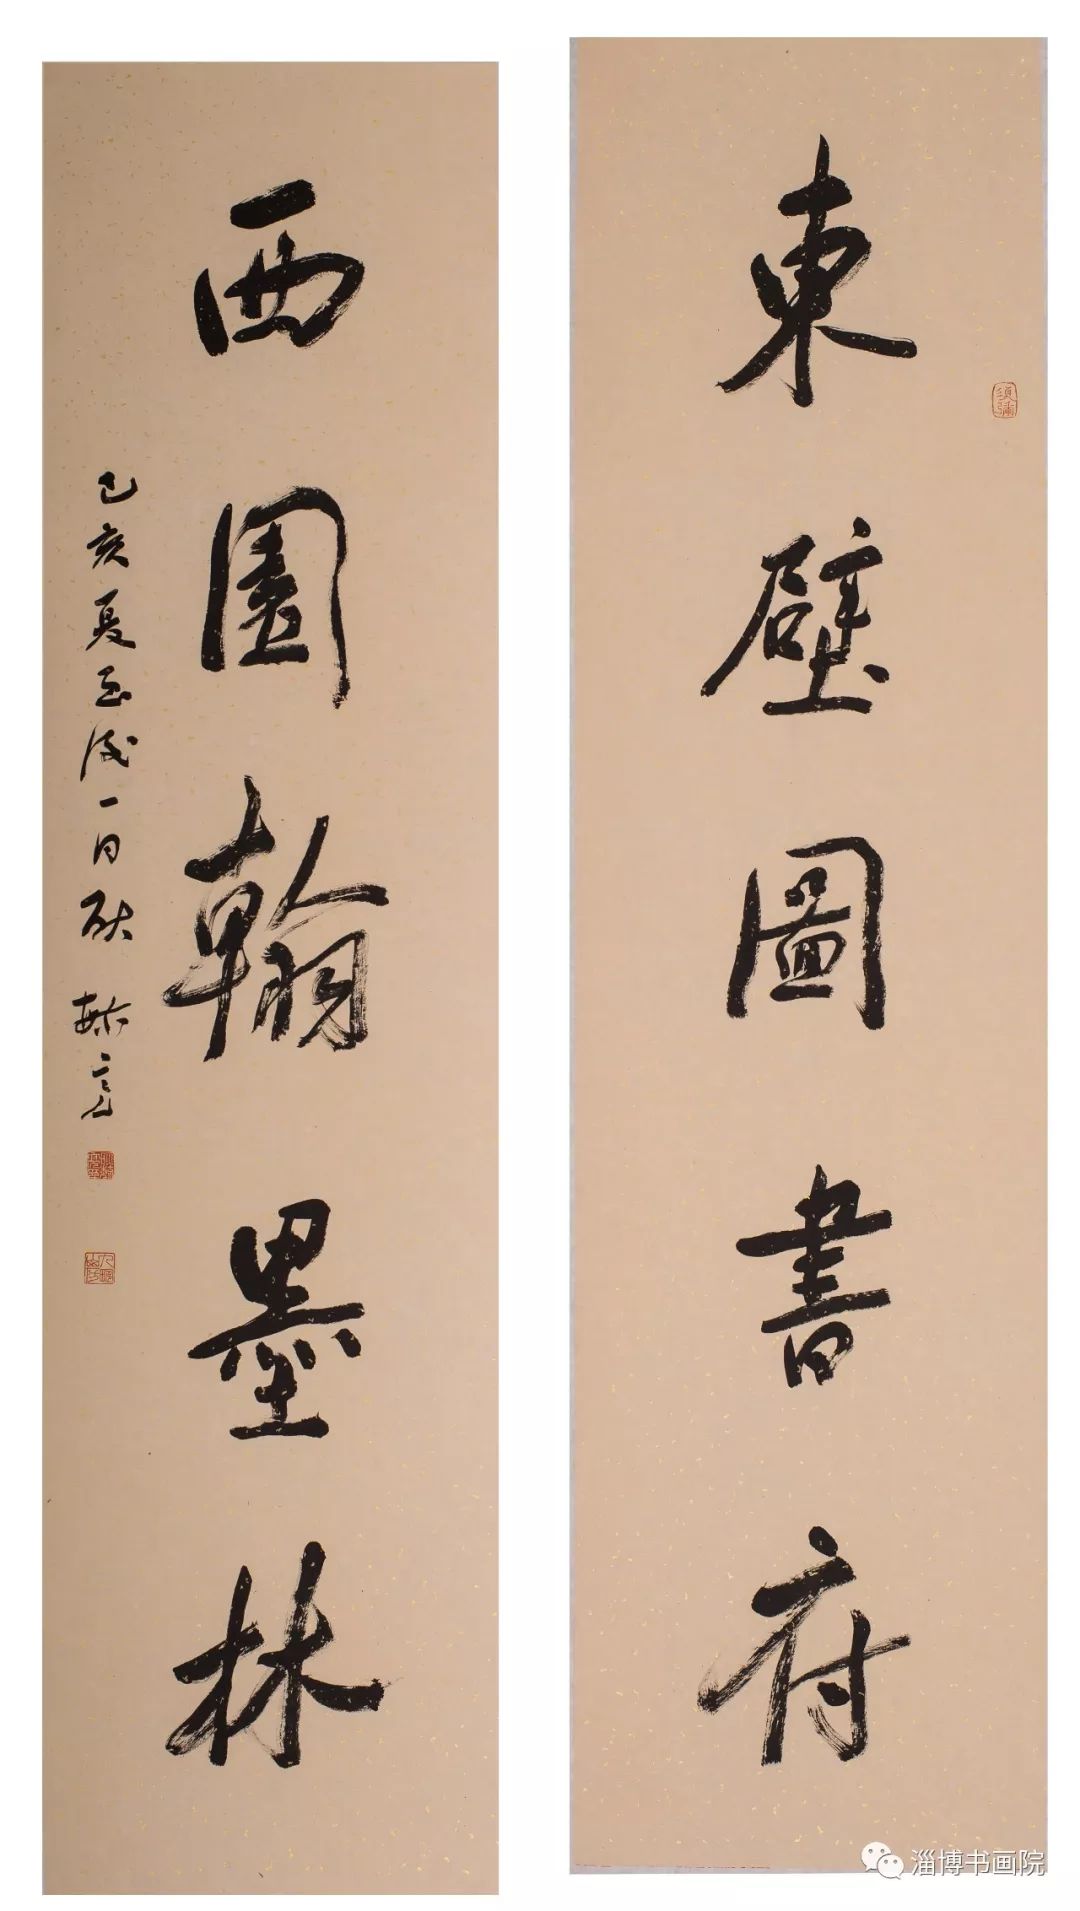 東壁圖書府
西園翰墨林
己亥夏至後一日
須彌
淄博书画院